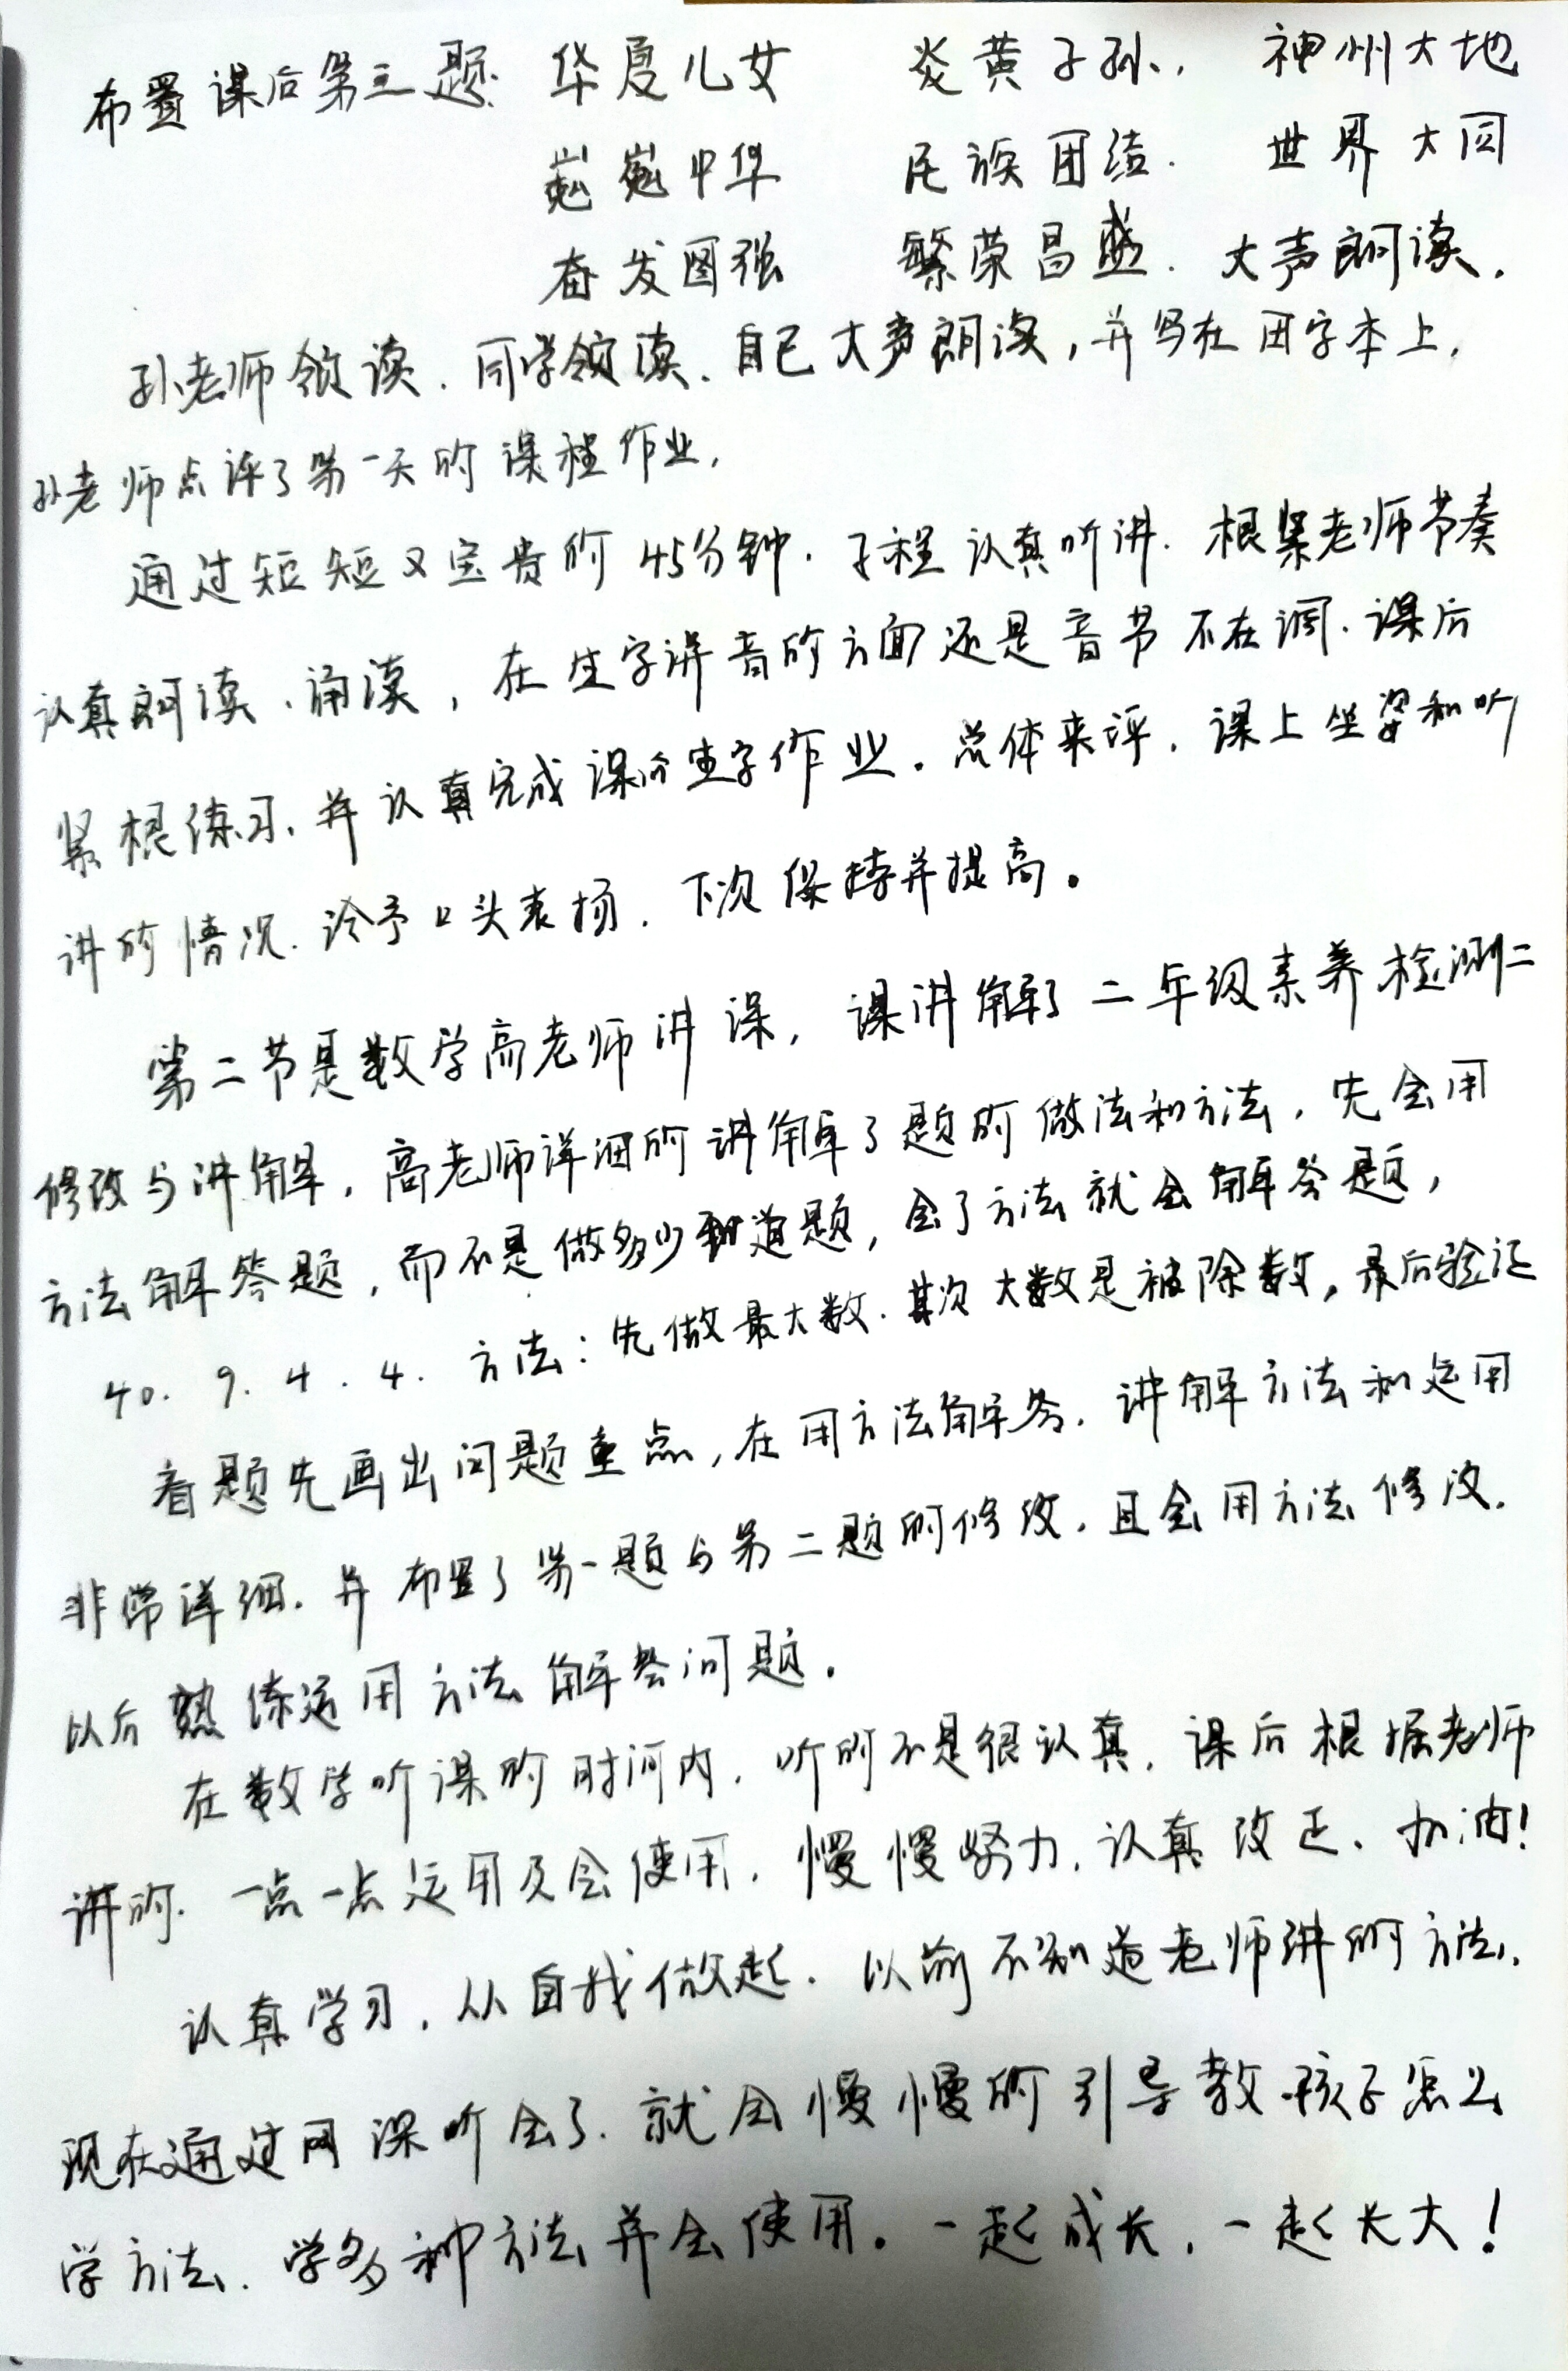 布置课后第三题. 华夏儿女 炎黄子孙. 神州大地
巍巍中华 民族团结. 世界大同
奋发图强 繁荣昌盛. 大声朗读.
孙老师领读. 同学领读. 自己大声朗读, 并写在田字本上,
孙老师点评了第一天的课程作业,
通过短短又宝贵的45分钟. 子程认真听讲. 根紧老师节奏
认真朗读、诵读, 在生字讲音的方面还是音节不在调. 课后
紧根练习. 并认真完成课后生字作业. 总体来评. 课上坐姿和听
讲的情况. 给予口头表扬. 下次保持并提高。
第二节是数学高老师讲课, 课讲解了二年级素养检测二
修改与讲解, 高老师详细的讲解了题的做法和方法, 先会用
方法解答题, 而不是做多少道题, 会了方法就会解答题,
40. 9. 4. 4. 方法: 先做最大数. 其次大数是被除数, 最后验证
看题先画出问题重点, 在用方法解答. 讲解方法和运用
非常详细. 并布置了第一题与第二题的修改. 且会用方法修改.
以后熟练运用方法解答问题.
在数学听课的时间内. 听的不是很认真. 课后根据老师
讲的. 一点一点运用及会使用. 慢慢努力. 认真改正. 加油!
认真学习. 从自我做起. 以前不知道老师讲的方法.
现在通过网课听会了. 就会慢慢的引导教孩子怎么
学方法. 学多种方法并会使用。一起成长, 一起长大!